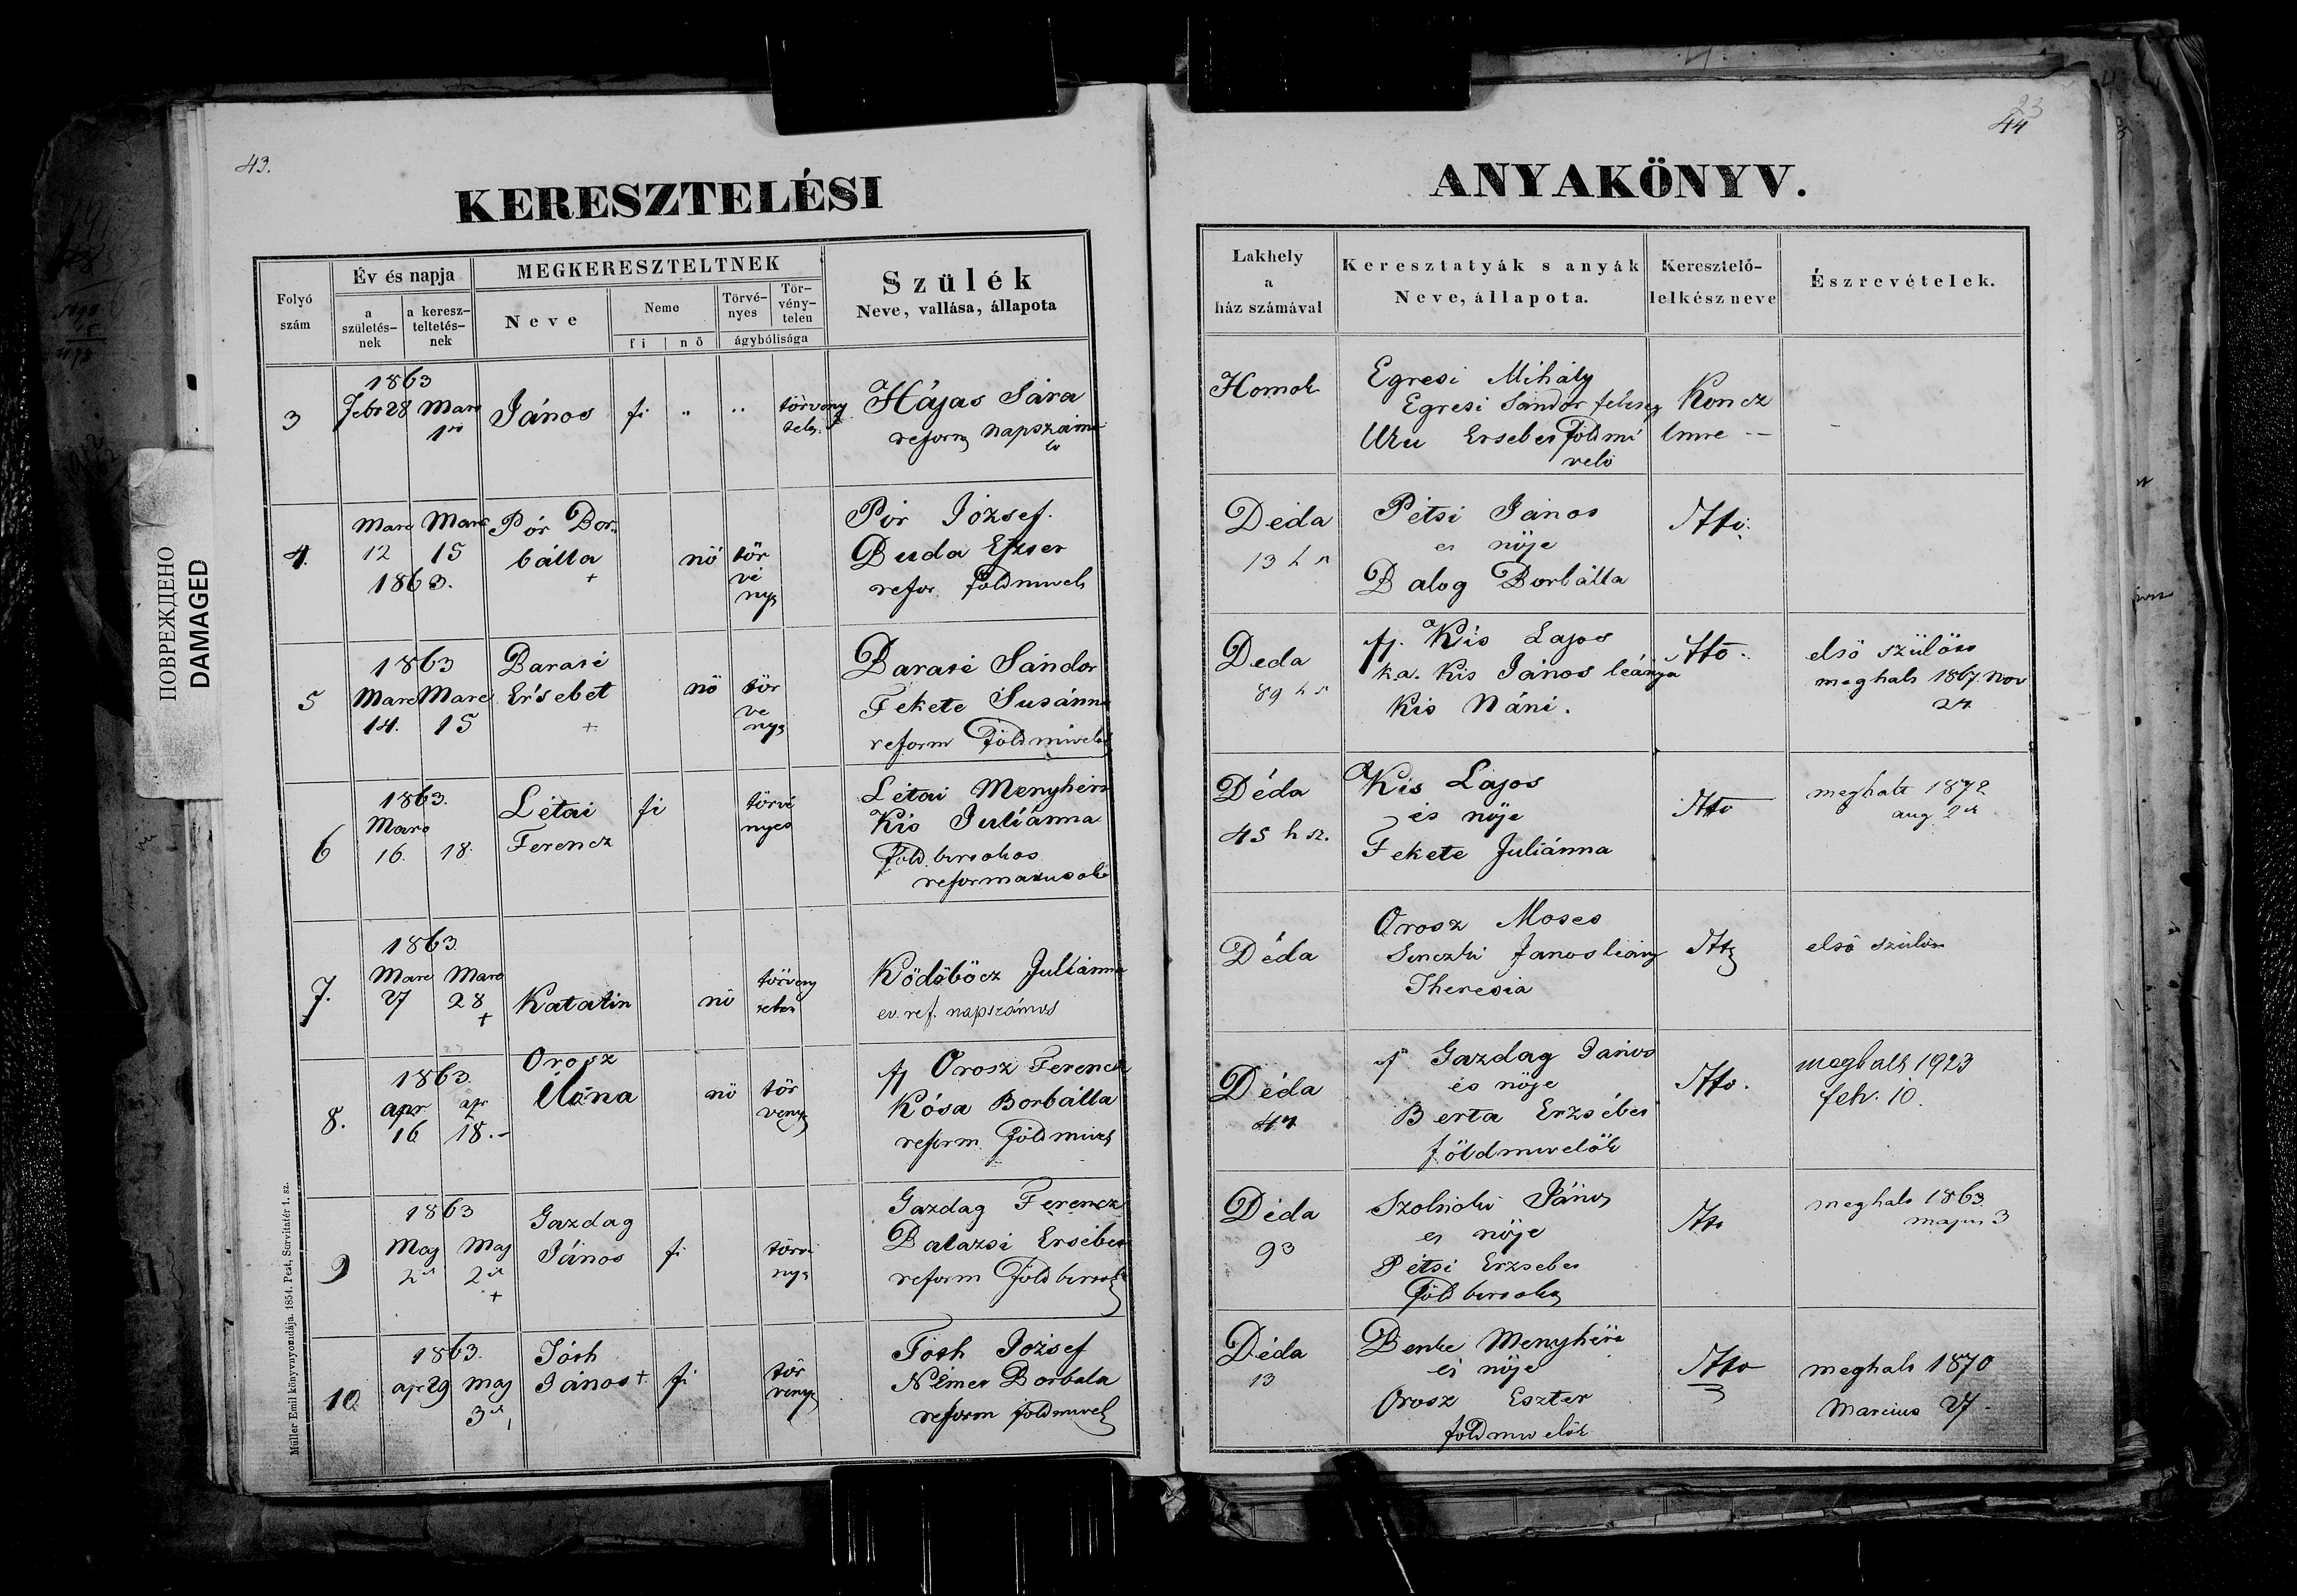 43.
KERESZTELÉSI
Folyó szám
Év és napja
a születés-nek
a keresz-teltetés-nek
MEGKERESZTELTNEK
Neve
Neme
fi
nö
Törvé-nyes
Tör-vény-telen
ágybólisága
Szülék
Neve, vallása, állapota
3
1863
Febr 28
Marc
János
fi
"
"
törvény
telen
Hájas Sára
reform napszámos
4.
Marc
12
Marc
15
1863.
Pór Bor
bálla
+
nö
tör
vé
nyes
Pór József.
Buda Eszter
refor. földmivel
5
1863
Marc
14.
Marc
15
Barasi
Ersebet
+
nö
tör
ve
nyes
Barasi Sándor
Fekete Susánna
reform Földmivel
6
1863.
Marc
16.
18.
Létai
Ferencz
fi
törvé
nyes
Létai Menyhért
Kis Juliánna
Föld birtokos
reformatusok
7.
1863.
Marc
27
Marc
28
+
Katalin
nö
törveny
telen
Ködöböcz Juliánna
ev. ref. napszámos
8.
1863.
apr
16
apr
18.-
Orosz
Ilona
nö
tör
venyes
ifj Orosz Ferencz
Kósa Borbálla
reform. Földmivel
9
1863
Maj
2
Maj
2
+
Gazdag
János
fi
törvé
nyes
Gazdag Ferencz
Balazsi Ersebet
reform Földbirtok
10
1863.
apr 29
Maj
3
Tóth
János +
fi
tör
venyes
Tóth József
Német Borbala
reform földmivel
Müller Emil könyvnyomdája. 1854. Pest, Servitatér 1. sz.
ПОВРЕЖДЕНО
DAMAGED
23
44
ANYAKÖNYV.
Lakhely
a
ház számával
Keresztatyák s anyák
Neve, állapota.
Keresztelő-
lelkész neve
Észrevételek.
Homok
Egresi Mihály
Egresi Sándor feleseg
Ersebet Földmi
velö
Koncz
Imre
Déda
13 h s
Pétsi János
es nöje
Balog Borbálla
Deda
89 h s
ifj. Kis Lajos
h.a. Kis János leánya
Kis Náni.
elsö szülött
meghalt 1867. Nov
24
Déda
45 h sz.
Kis Lajos
és nöje
Fekete Juliánna
meghalt 1872
aug. 2
Déda
Orosz Moses
Janos leány
Theresia
elsö szülött
Déda
47
ifj Gazdag János
és nöje
Berta Erzsébet
földmivelök
meghalt 1923
feb. 10.
Déda
93
Szolnoki János
es nöje
Pétsi Erzsebet
Föld birtokos
meghalt 1863
majus 3
Déda
13
Benke Menyhért
és nöje
Orosz Eszter
földmivelök
meghalt 1870
Marcius 27.